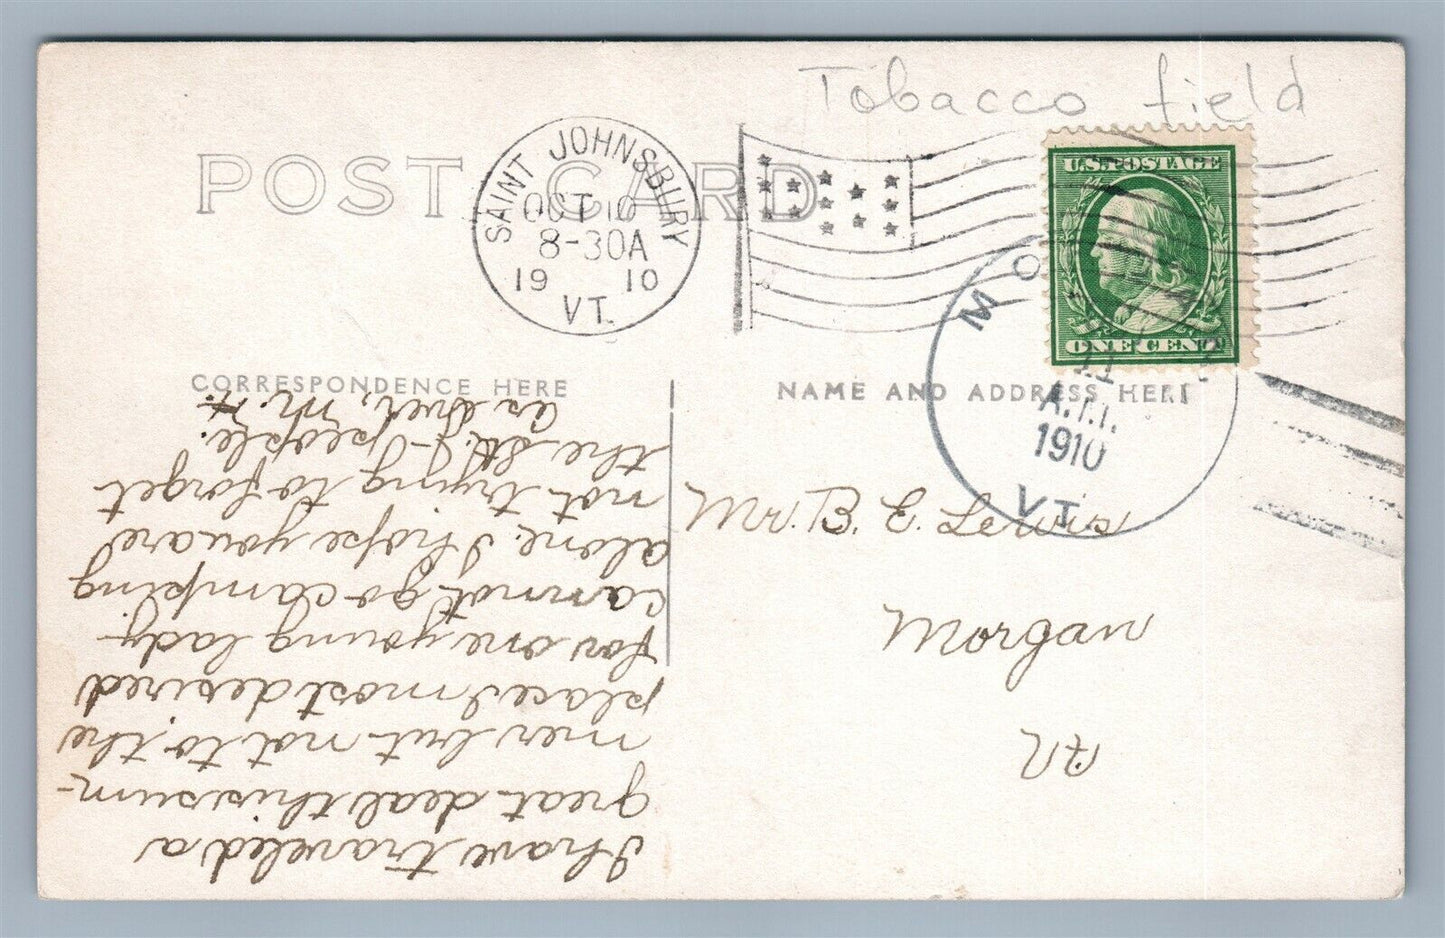 Tobacco field
POST CARD
SAINT JOHNSBURY
OCT 10
8-30A
1910
VT.
U.S. POSTAGE
ONE CENT
MO
11
A.M.
1910
VT.
CORRESPONDENCE HERE
NAME AND ADDRESS HERE
Mr. B. E. Lewis
Morgan
Vt.
I have traveled a
great deal this sum-
mer but not to the
place I most desired
for one young lady
cannot go camping
alone. I hope you are
not trying to forget
the St. J- people.
as ever, M. H.